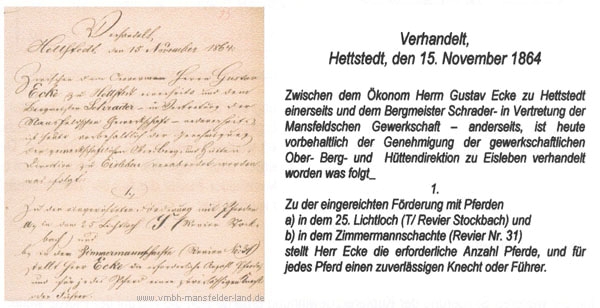 Verhandelt,
Hettstedt, den 15. November 1864.
Zwischen dem Oeconomen Herrn Gustav
Ecke zu Hettstedt einerseits und dem
Bergmeister Schrader – in Vertretung der
Mansfeldschen Gewerkschaft – anderseits,
ist heute vorbehaltlich der Genehmigung
der gewerkschaftlichen Ober-Berg- und Hütten-
Direction zu Eisleben verhandelt worden
was folgt.
1.,
Zu der eingerichteten Förderung mit Pferden
a, in dem 25. Lichtloch
b, in dem Zimmermannschachte (Revier No 31)
stellt Herr Ecke die erforderliche Anzahl Pferde,
und für jedes Pferd einen zuverlässigen Knecht
oder Führer.
www.vmbh-mansfelder-land.de
Verhandelt,
Hettstedt, den 15. November 1864
Zwischen dem Ökonom Herrn Gustav Ecke zu Hettstedt
einerseits und dem Bergmeister Schrader- in Vertretung der
Mansfeldschen Gewerkschaft – anderseits, ist heute
vorbehaltlich der Genehmigung der gewerkschaftlichen
Ober- Berg- und Hüttendirektion zu Eisleben verhandelt
worden was folgt_
1.
Zu der eingereichten Förderung mit Pferden
a) in dem 25. Lichtloch (T/ Revier Stockbach) und
b) in dem Zimmermannschachte (Revier Nr. 31)
stellt Herr Ecke die erforderliche Anzahl Pferde, und für
jedes Pferd einen zuverlässigen Knecht oder Führer.